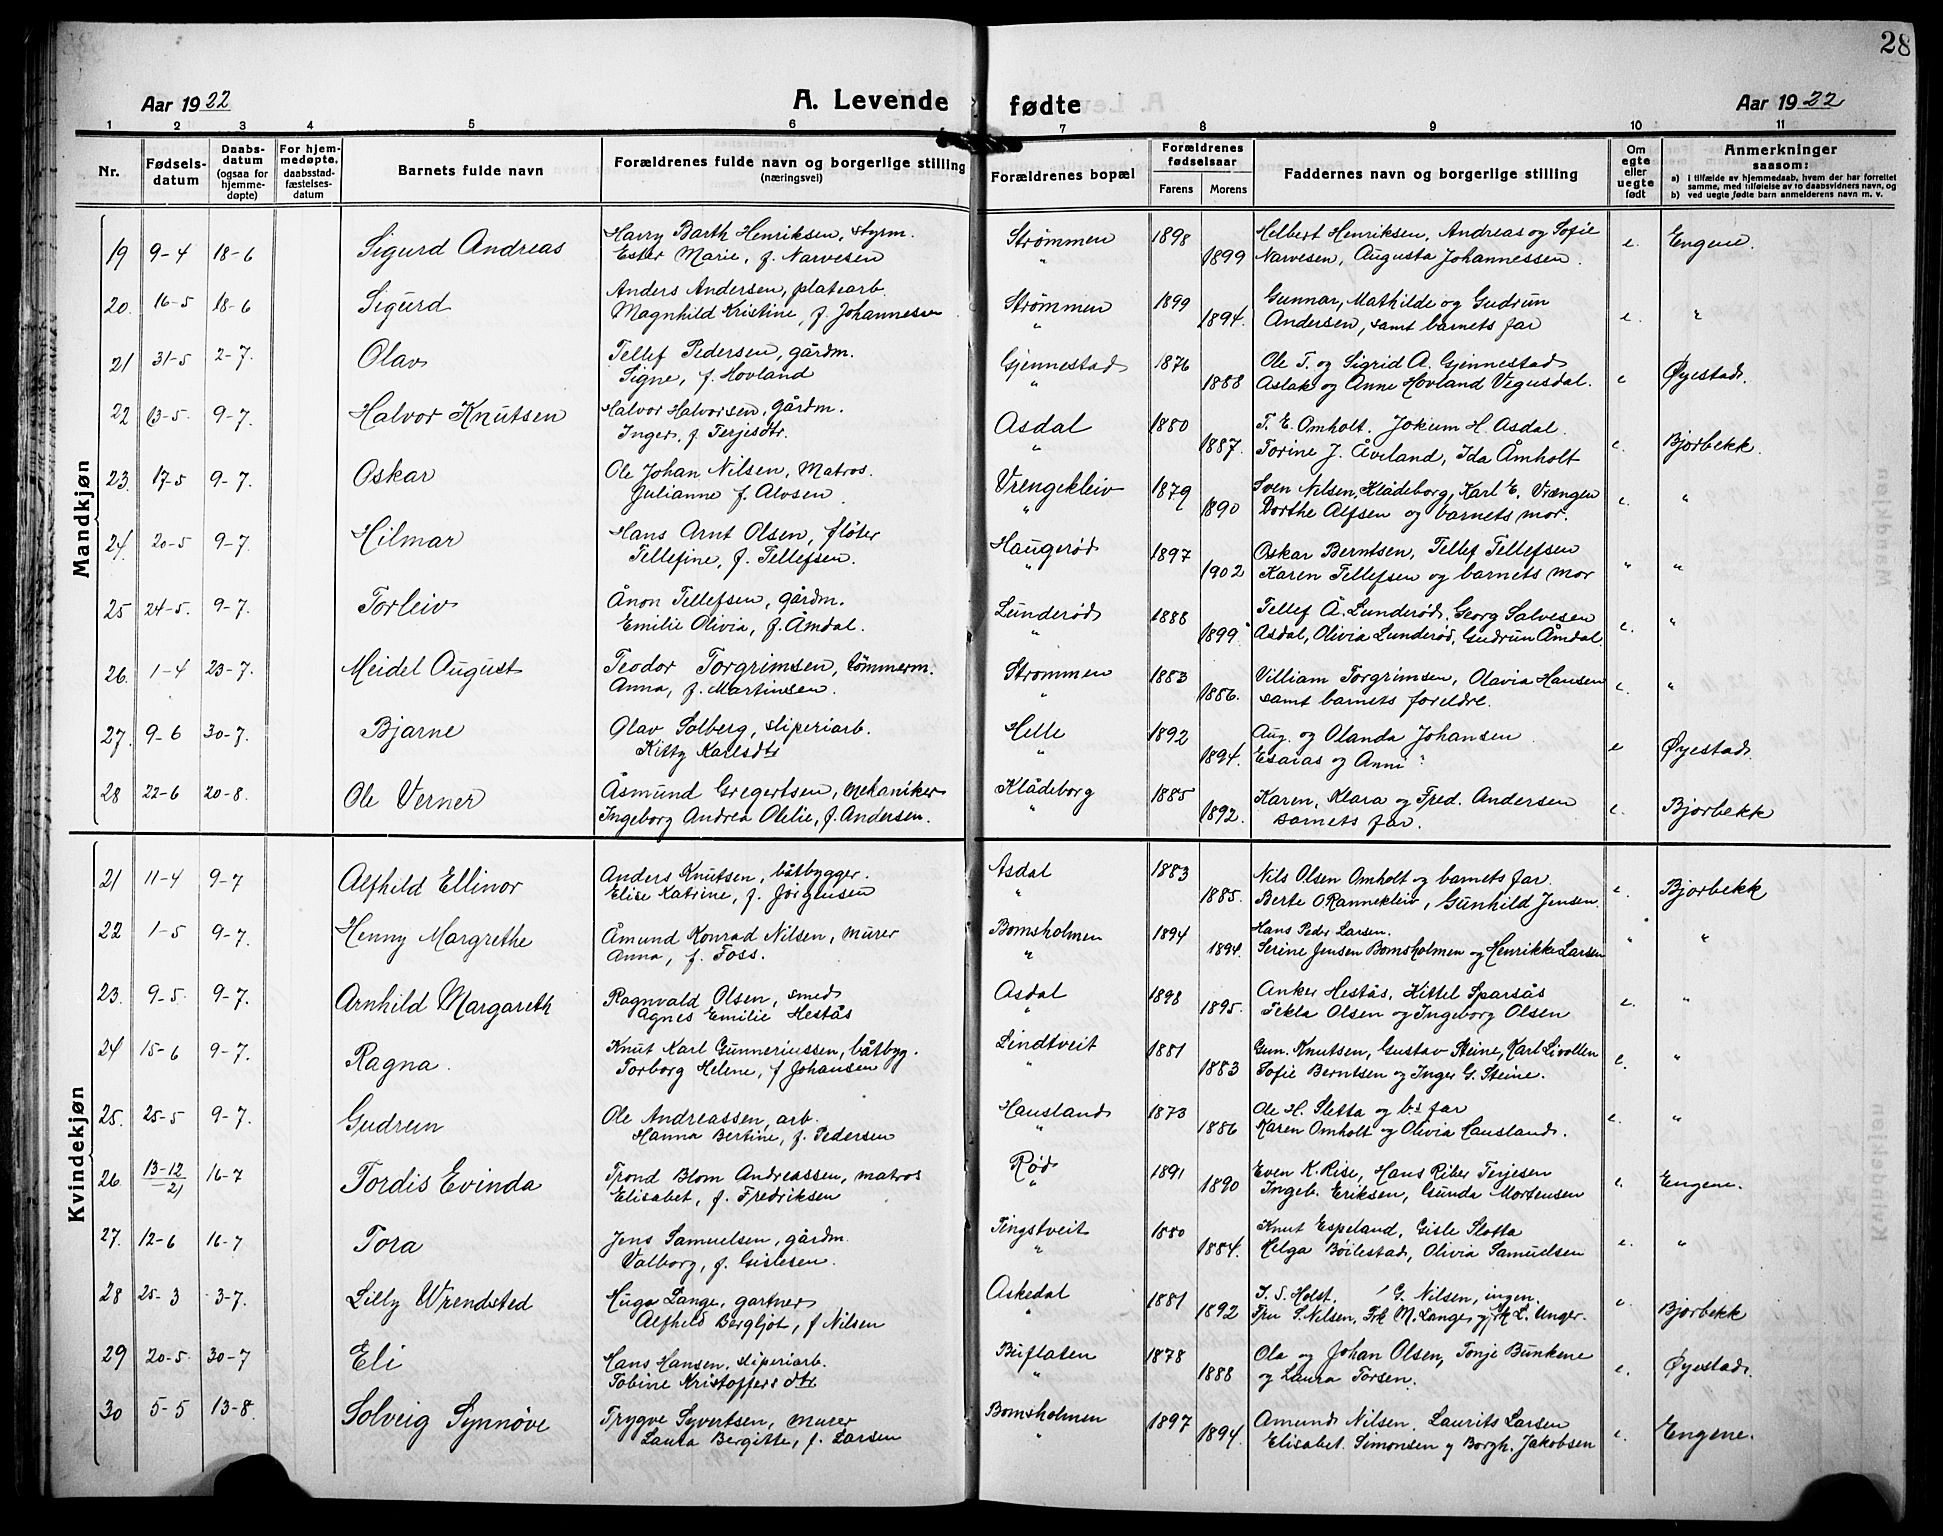 28
Aar 1922 A. Levende fødte Aar 1922
1 2 3 4 5 6 7 8 9 10 11
Nr. Fødselsdatum Daabsdatum (ogsaa for hjemmedøpte) For hjemmedøpte, daabsstadfæstelsesdatum Barnets fulde navn Forældrenes fulde navn og borgerlige stilling (næringsvei) Forældrenes bopæl Forældrenes fødselsaar Farens Morens Faddernes navn og borgerlige stilling Om egte eller uegte født Anmerkninger saasom: a) i tilfælde av hjemmedaab, hvem der har forrettet samme, med tilføielse av to daabsvidners navn, og b) ved uegte fødte barn anmelderens navn m. v.
Mandkjøn
19 9-4 18-6 Sigurd Andreas Harry Barth Henriksen, styrm. Strømmen 1898 Helbert Henriksen, Andreas og Sofie e. Engene.
Ester Marie, f. Narvesen " 1899 Narvesen, Augusta Johannessen.
20. 16-5 18-6 Sigurd Anders Andersen, platearb. Strømmen 1899 Gunnar, Mathilde og Gudrun e. "
Magnhild Kristine, f. Johannesen " 1894. Andersen, samt barnets far
21 31-5 2-7. Olav Tellef Pedersen, gårdm. Gjennestad 1876 Ole T. og Sigrid A. Gjennestad e Øyestad.
Signe, f. Hovland " 1888 Aslak og Anne Hovland Vegusdal.
22 13-5. 9-7. Halvor Knutsen Halvor Halvorsen, gårdm. Asdal 1880 T. E. Omholt. Jokum H. Asdal. e. Bjorbekk.
Inger, f. Terjesdtr. " 1887. Torine J. Åveland, Ida Åmholt
23. 17-5 9-7. Oskar Ole Johan Nilsen, Matros. Vrengekleiv 1879 Sven Nilsen, Klådeborg, Karl E. Vrængen e. "
Julianne f. Alvsen. " 1890 Dorthe Alfsen og barnets mor.
24. 20-5 9-7. Hilmar Hans Arnt Olsen, fløter Haugerød 1897 Oskar Berntsen, Tellef Tellefsen " "
Tellefine, f. Tellefsen. " 1902 Karen Tellefsen og barnets mor
25 24-5. 9-7. Torleiv Ånon Tellefsen, gårdm. Lunderød 1888 Tellef Å. Lunderød, Georg Salvesen e. "
Emilie Olivia, f. Åmdal. " 1899. Asdal, Olivia Lunderød, Gudrun Åmdal
26. 1-4 23-7. Meidel August Teodor Torgrimsen, tömmerm. Strømmen 1883 Villiam Torgrimsen, Olavia Hansen e. "
Anna, f. Martinsen. " 1886. samt barnets foreldre.
27. 9-6 30-7. Bjarne Olav Solberg, sliperiarb. Helle 1892 Aug. og Olanda Johansen e Øyestad.
Kitty Karlsdtr " 1894. Esaias og Anni "
28 22-6 20-8. Ole Verner Åsmund Gregertsen, mekaniker Klådeborg 1885 Karen, Klara og Fred. Andersen e. Bjorbekk
Ingeborg Andrea Olelie, f. Andersen. " 1892. Barnets far.
Kvindekjøn
21 11-4 9-7 Alfhild Ellinor Anders Knutsen, båtbygger. Asdal 1883 Nils Olsen Omholt og barnets far. e. Bjorbekk
Elise Katrine, f. Jørgensen " 1885. Berte O Rannekleiv, Gunhild Jensen.
22 1-5 9-7. Henny Margrethe Åmund Konrad Nilsen, murer Bomsholmen 1894 Hans Pedr Larsen. " "
Anna, f. Foss. " 1894. Serine Jensen Bomsholmen og Henrikke Larsen
23. 9-5. 9-7. Arnhild Margareth Ragnvald Olsen, smed Asdal 1898 Anker Hestås, Kittel Sparsås e. "
Agnes Emilie Hestås " 1895. Tekla Olsen og Ingeborg Olsen
24 15-6 9-7. Ragna. Knut Karl Gunneriussen, båtbyg. Lindtveit 1881 Gun. Knutsen, Gustav Steine, Karl Livollen e. "
Torborg Helene, f Johansen " 1883 Sofie Berntsen og Inger G. Steine.
25. 25-5 9-7. Gudrun Ole Andreassen, arb. Hausland 1873 Ole H. Sletta og b.s far e. "
Hanna Bertine, f. Pedersen " 1886 Karen Omholt og Olivia Hausland.
26 13-12/21 16-7 Tordis Evinda Trond Blom Andreassen, matros Rød 1891 Even K. Rise, Hans Riber Terjesen e. Engene.
Elisabet, f. Fredriksen " 1890 Ingeb. Eriksen, Gunda Mortensen
27. 12-6 16-7 Tora Jens Samuelsen, gårdm. Tingstveit 1880 Knut Espeland, Gisle Slotta e. "
Valborg, f. Gislesen. " 1884. Helga Böilestad, Olivia Samuelsen
28 25-3 3-7. Lilly Wrendsted Hugo Lange, gartner Askedal 1881 T. S. Holst. G. Nilsen, ingen. e. Bjorbekk
Alfhild Bergljot, f Nilsen " 1892 Fru S. Nilsen, Frk M. Lange, og frk L. Unger.
29 20-5. 30-7 Eli Hans Hansen, sliperiarb. Buflaten 1878 Ola og Johan Olsen, Tonje Bunkene e. Øyestad.
Tobine Kristoffersdtr " 1888 og Laura Torsen.
30 5-5 13-8. Solveig Synnøve Trygve Syvertsen, murer Bomsholmen 1897 Amund Nilsen, Laurits Larsen e. Engene.
Laura Bergitte, f. Larsen " 1894. Elisabet Simonsen g Borgh. Jakobsen